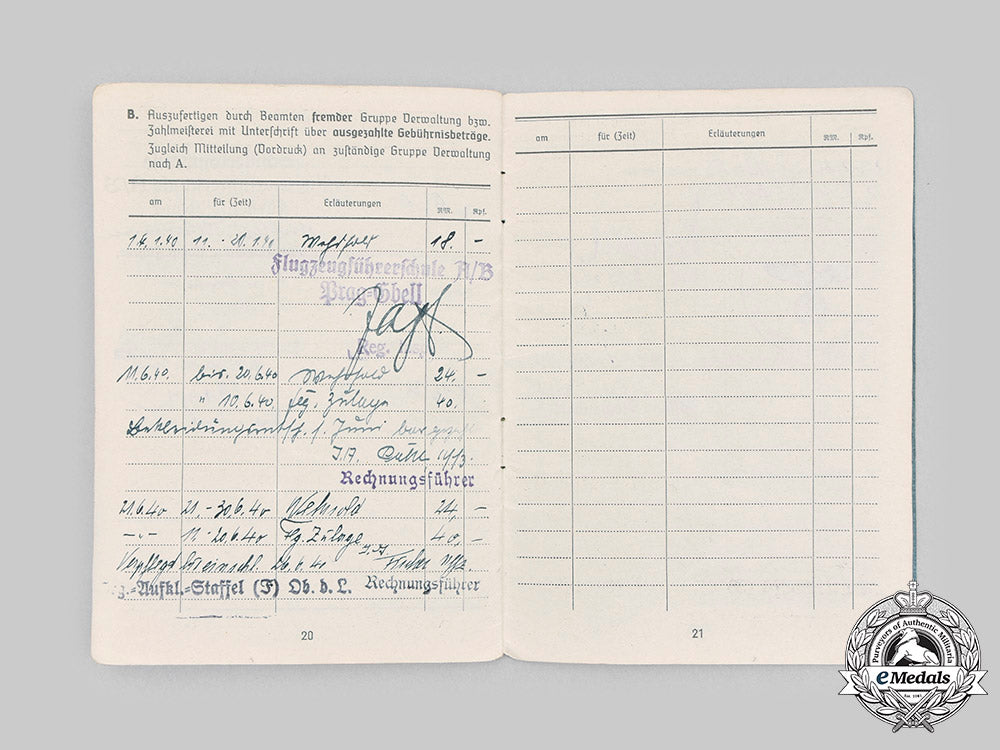 B. Auszufertigen durch Beamten fremder Gruppe Verwaltung bzw.
Zahlmeisterei mit Unterschrift über ausgezahlte Gebührnisbeträge.
Zugleich Mitteilung (Vordruck) an zuständige Gruppe Verwaltung
nach A.
am für (Zeit) Erläuterungen RM. Rpf.
11. - 20.1.40 Wehrsold 18. -
Flugzeugführerschule A/B
Prag-Gbell
Reg.
11.6.40. bis 20.6.40 Wehrsold 24. -
" 10.6.40. Flg. Zulage 40.
Bekleidungsentsch. f. Juni
I.A.
Rechnungsführer
21.6.40 21.-30.6.40 Wehrsold 24, -
-"- 11.-20.6.40 Flg. Zulage 40, -
Verpflegt einschl. 26.6.40 I.A.
-Aufkl.-Staffel (F) Ob. d. L. Rechnungsführer
20
am für (Zeit) Erläuterungen RM. Rpf.
21
Purveyors of Authentic Militaria
eMedals